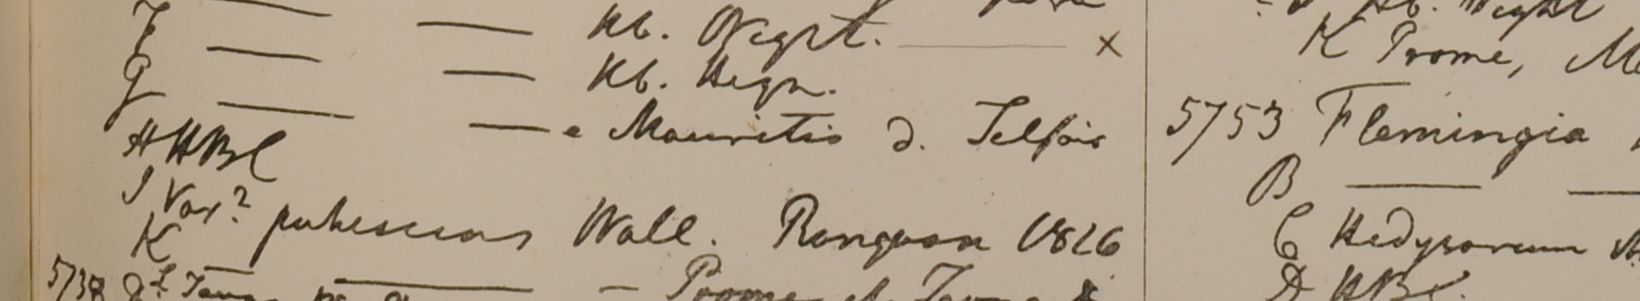 F — — Hb. Wight. — ×
G — — Hb. Heyn.
H HBC — — e Mauritio d. Telfair
I Var? pubescens Wall. Rangoon 1826
K — — Prome et Tavoy
5738
Hb. Wight
K Prome,
5753 Flemingia
B — —
C Hedysarum
D HBC